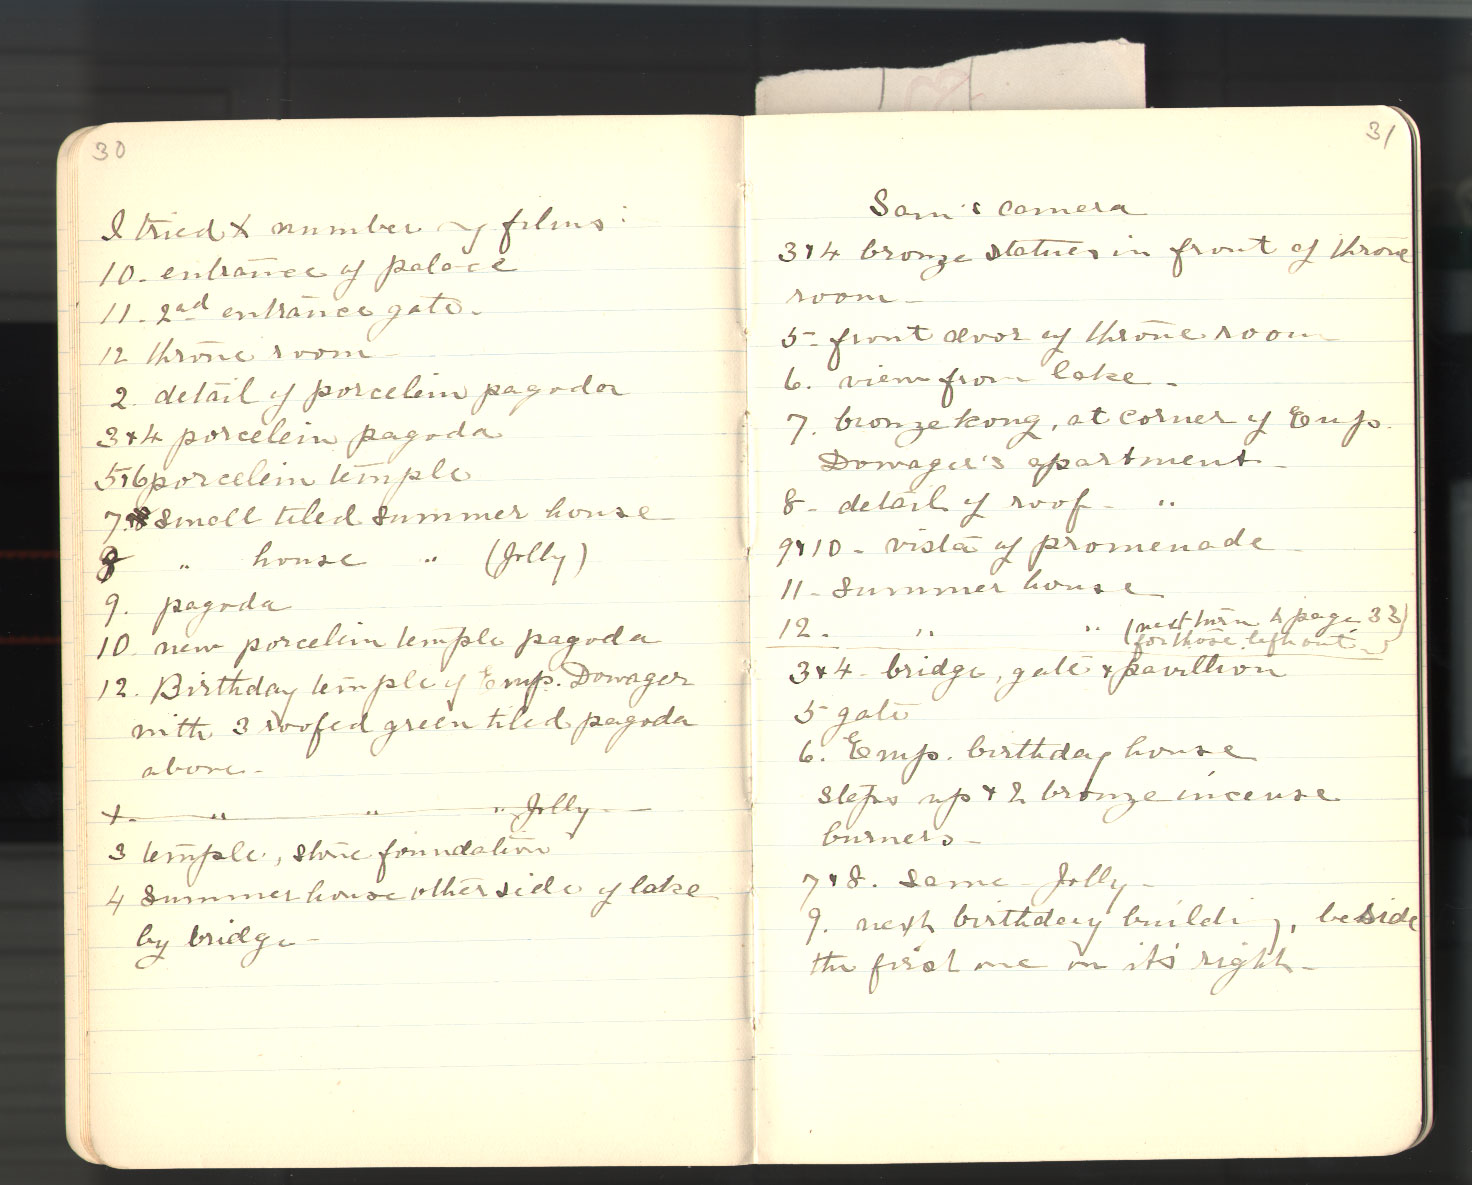 30
I tried X number of films:
10. entrance of palace
11. 2nd entrance gate.
12 throne room
2. detail of porcelein pagoda
3 & 4 porcelein pagoda
5 & 6 porcelein temple
7. small tiled summer house
8 " house " (Jolly)
9. pagoda
10. new porcelein temple pagoda
12. Birthday temple of Emp. Dowager
with 3 roofed green tiled pagoda
above.
" " " Jolly
3 temple, stone foundation
4 summer house other side of lake
by bridge
31
Sam's camera
3 & 4 bronze statues in front of throne
room
5 - front door of throne room
6. view from lake
7. bronze kong, at corner of Emp.
Dowager's apartment
8 - detail of roof "
9 & 10 - vista of promenade
11 - summer house
12. " " (next turn to page 33)
for those left out
3 & 4 - bridge, gate & pavillion
5 gate
6. Emp. birthday house
steps up & 2 bronze incense
burners
7 & 8. same - Jolly
9. next birthday buildi , beside
the first one on it's right.